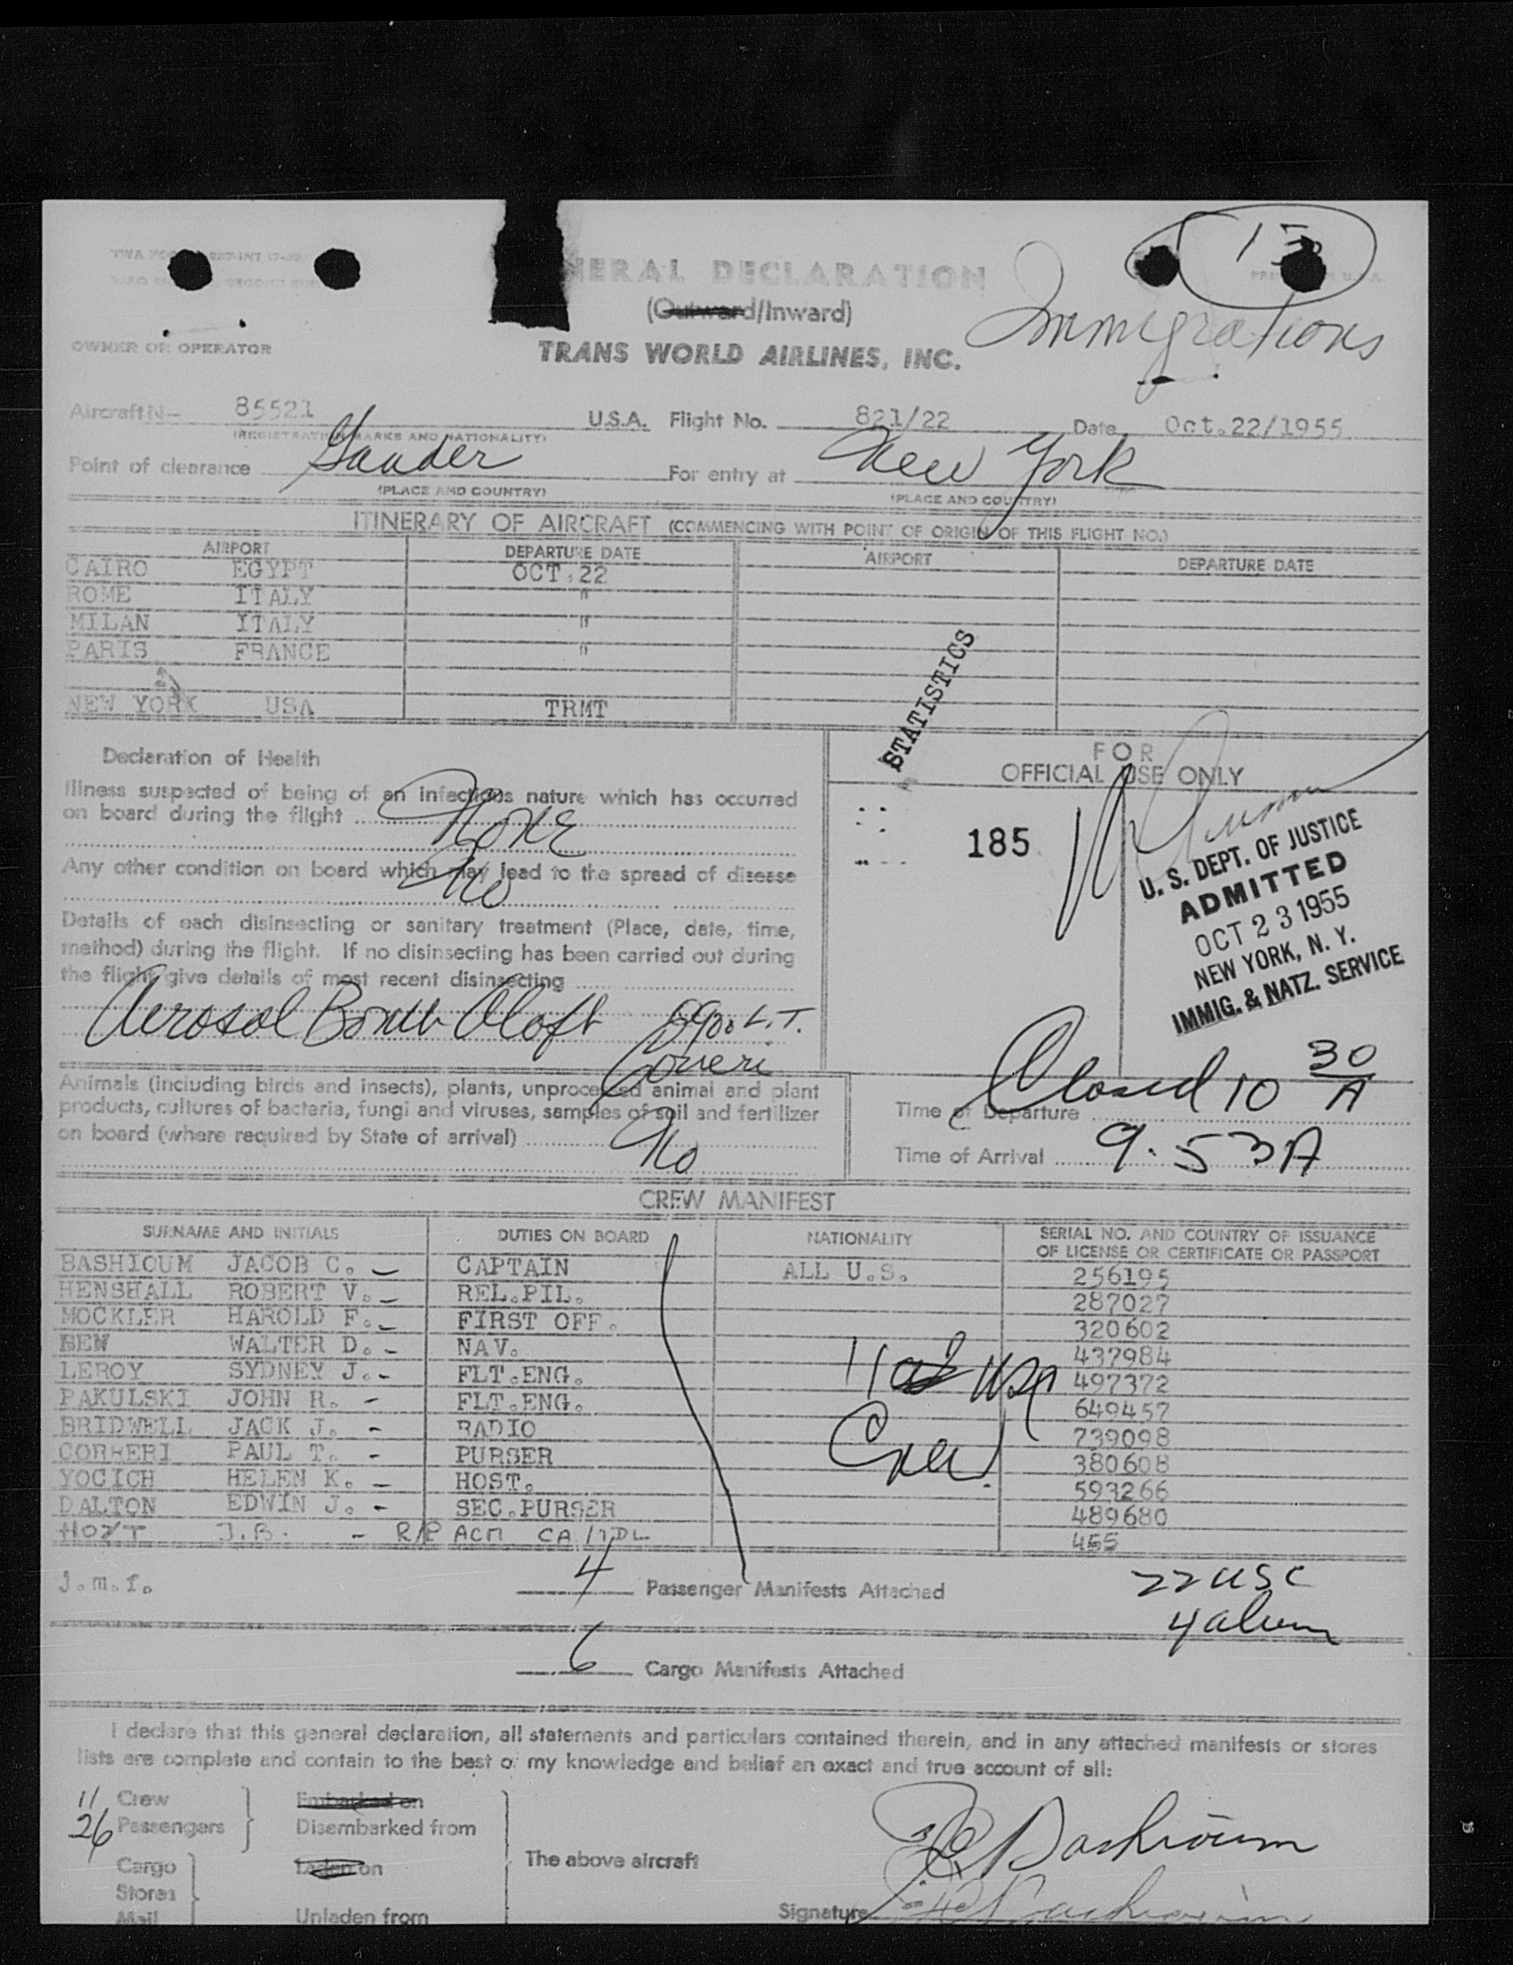 15
NERAL DECLARATION
(Outward/Inward)
Immigrations
OWNER OR OPERATOR
TRANS WORLD AIRLINES, INC.
Aircraft N— 85521 U.S.A. Flight No. 821/22 Date Oct.22/1955
(REGISTRATION MARKS AND NATIONALITY)
Point of clearance Gander For entry at New York
(PLACE AND COUNTRY) (PLACE AND COUNTRY)
ITINERARY OF AIRCRAFT (COMMENCING WITH POINT OF ORIGIN OF THIS FLIGHT NO.)
AIRPORT DEPARTURE DATE AIRPORT DEPARTURE DATE
CAIRO EGYPT OCT.22
ROME ITALY "
MILAN ITALY "
PARIS FRANCE "
NEW YORK USA TRMT
STATISTICS
Declaration of Health
Illness suspected of being of an infectious nature which has occurred
on board during the flight None
Any other condition on board which may lead to the spread of disease
No
Details of each disinsecting or sanitary treatment (Place, date, time,
method) during the flight. If no disinsecting has been carried out during
the flight give details of most recent disinsecting
Aerosol Bomb Aloft 0900 L.T.
Correri
Animals (including birds and insects), plants, unprocessed animal and plant
products, cultures of bacteria, fungi and viruses, samples of soil and fertilizer
on board (where required by State of arrival) No
FOR
OFFICIAL USE ONLY
185
U. S. DEPT. OF JUSTICE
ADMITTED
OCT 23 1955
NEW YORK, N. Y.
IMMIG. & NATZ. SERVICE
Closed 10 30 A
Time of Departure
Time of Arrival 9.53A
CREW MANIFEST
SURNAME AND INITIALS DUTIES ON BOARD NATIONALITY SERIAL NO. AND COUNTRY OF ISSUANCE
OF LICENSE OR CERTIFICATE OR PASSPORT
BASHIOUM JACOB C. — CAPTAIN ALL U.S. 256195
HENSHALL ROBERT V. — REL.PIL. 287027
MOCKLER HAROLD F. — FIRST OFF. 320602
BEW WALTER D. - NAV. 437984
LEROY SYDNEY J. - FLT.ENG. 497372
PAKULSKI JOHN R. - FLT.ENG. 649457
BRIDWELL JACK J. - RADIO 739098
CORRERI PAUL T. - PURSER 380608
YOCICH HELEN K. — HOST. 593266
DALTON EDWIN J. - SEC.PURSER 489680
HOYT J.B. - R/P ACM CA/IDL 455
Crew
J.m.r.
4 Passenger Manifests Attached
22 USC
4 alien
6 Cargo Manifests Attached
I declare that this general declaration, all statements and particulars contained therein, and in any attached manifests or stores
lists are complete and contain to the best of my knowledge and belief an exact and true account of all:
11 Crew Embarked on
26 Passengers Disembarked from
Cargo Laden on The above aircraft
Stores
Mail Unladen from Signature JC Bashioum